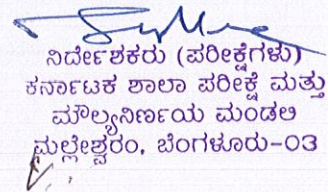 ನಿರ್ದೇಶಕರು (ಪರೀಕ್ಷೆಗಳು)
ಕರ್ನಾಟಕ ಶಾಲಾ ಪರೀಕ್ಷೆ ಮತ್ತು
ಮೌಲ್ಯನಿರ್ಣಯ ಮಂಡಲಿ
ಮಲ್ಲೇಶ್ವರಂ, ಬೆಂಗಳೂರು-03